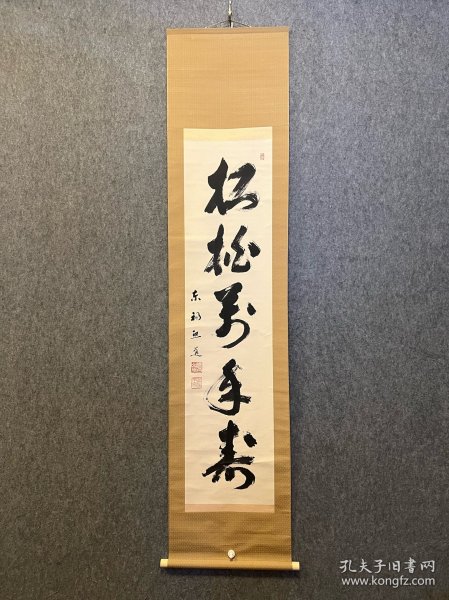 松柏萬年壽
東福
孔夫子旧书网
www.kongfz.com